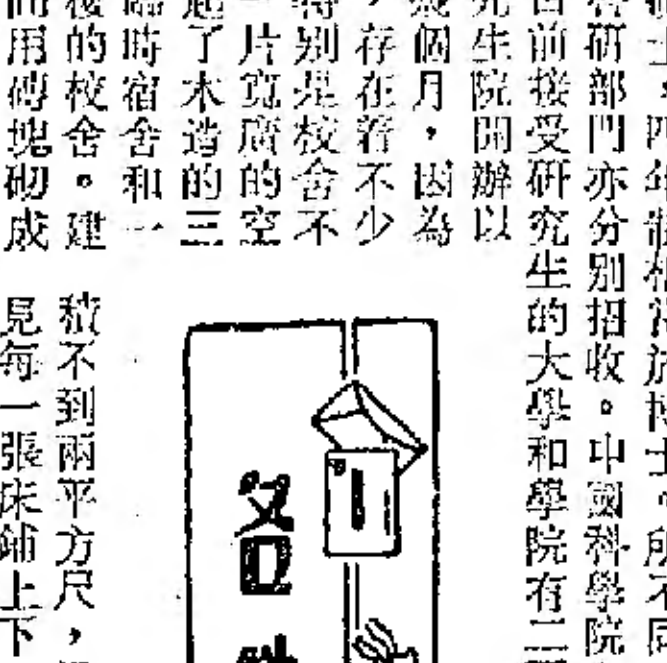 碩士，四年制相當於博士。所不同
各研部門亦分别招收。中國科學院
目前接受研究生的大學和學院有二
究生院開辦以
幾個月，因為
，存在着不少
特别是校舍不
一片寬廣的空
起了木造的三
臨時宿舍和一
後的校舍。建
用磚塊砌成
積不到兩平方尺，
見每一張床鋪上下